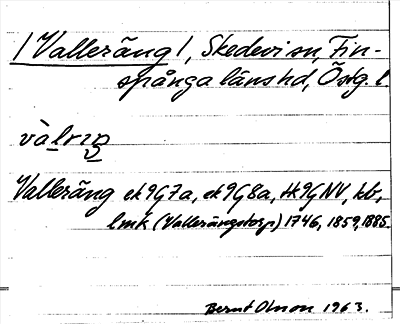 /Valleräng/, Skedevi sn, Fin-
spånga länshd, Östg. l.
vàlrıŋ
Valleräng ek 9G7a, ek 9G8a, Hk 9G NV, kb,
lmk (Vallerängstorp) 1746, 1859, 1885.
Bernt Olsson 1963.